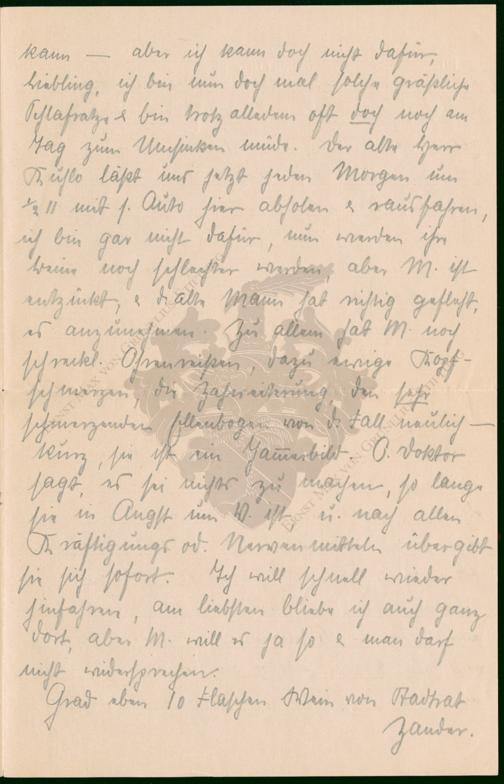 kann — aber ich kann doch nicht dafür,
Liebling, ich bin nun doch mal solche gräßliche
Schlafratze & bin trotz alledem oft doch noch am
Tag zum Umsinken müde. Der alte Herr
Kuhlo läßt uns jetzt jeden Morgen um
½ 11 mit s. Auto hier abholen & rausfahren,
ich bin gar nicht dafür, nun werden ihre
Beine noch schlechter werden, aber M. ist
entzückt, & d. alte Mann hat richtig gefleht,
es anzunehmen. Zu allem hat M. noch
schreckl. Ohrenreißen, dazu ewige Kopf-
schmerzen, die Zahneiterung, den sehr
schmerzenden Ellenbogen von d. Fall neulich —
kurz, sie ist ein Jammerbild. D. Doktor
sagt, es sei nichts zu machen, so lange
sie in Angst um W. ist u. nach allen
Kräftigungs od. Nervenmitteln übergibt
sie sich sofort. Ich will schnell wieder
hinfahren, am liebsten bliebe ich auch ganz
dort, aber M. will es ja so & man darf
nicht widersprechen.
Grad eben 10 Flaschen Wein von Stadtrat
Zander.